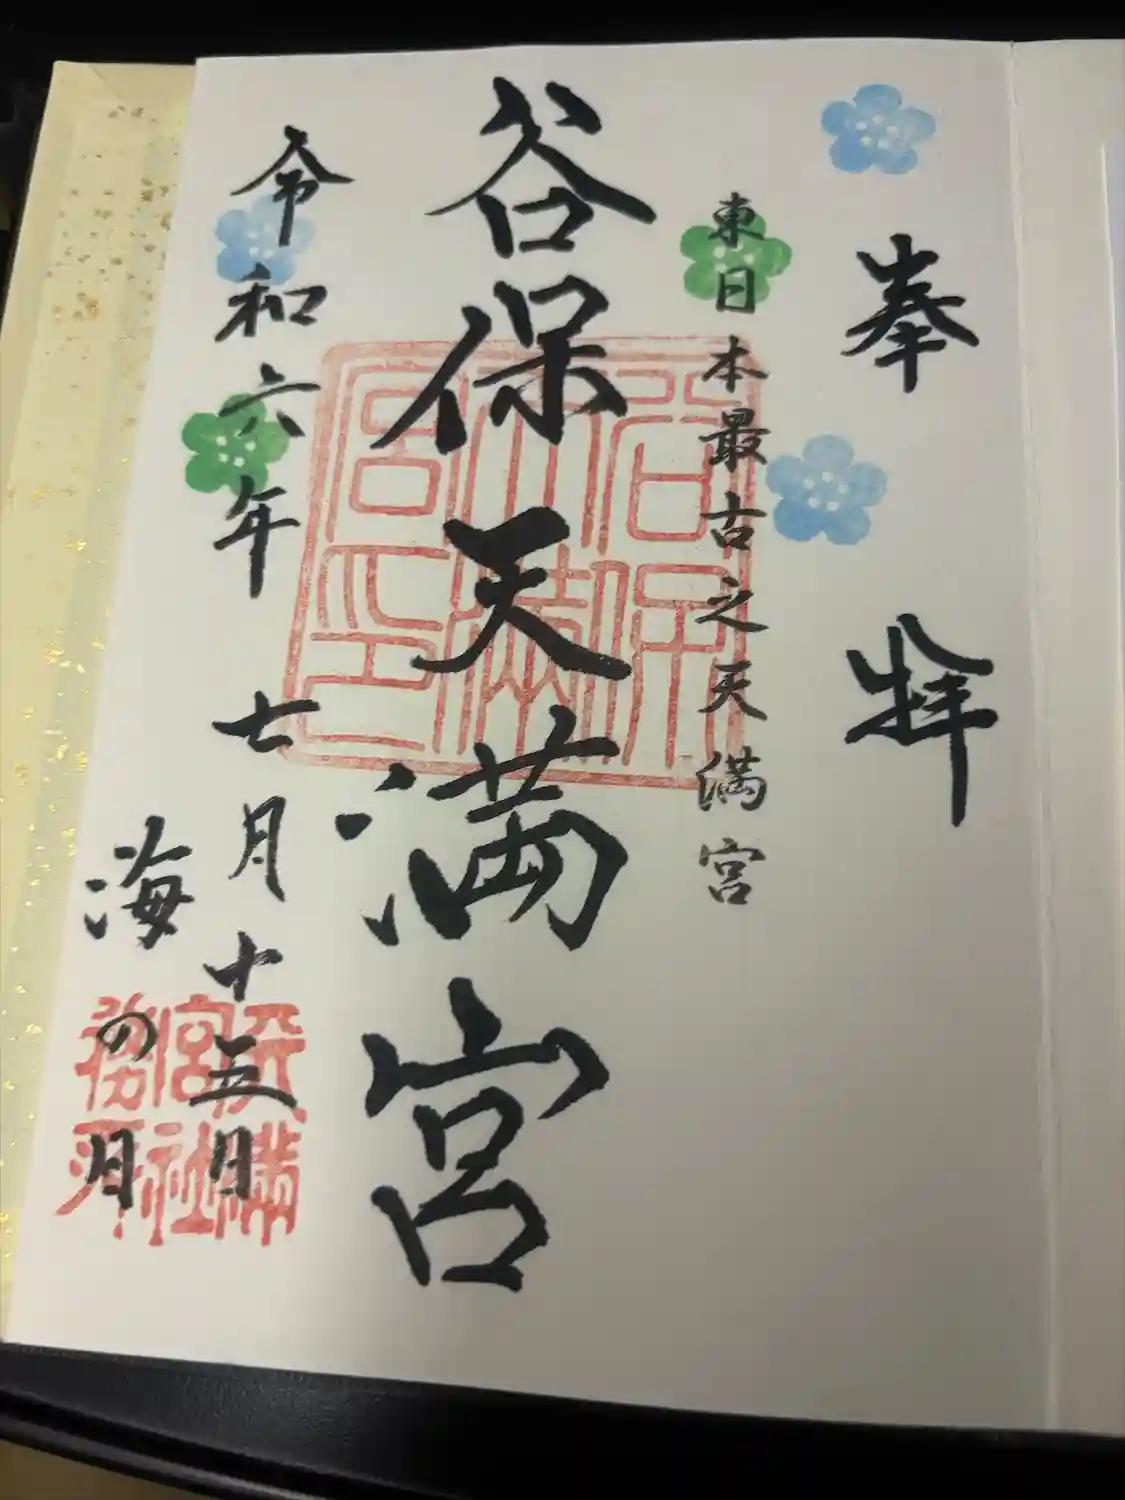 奉拝
東日本最古之天満宮
谷保天満宮
谷保天満宮印
令和六年七月十五日
海の日
天満宮社務所